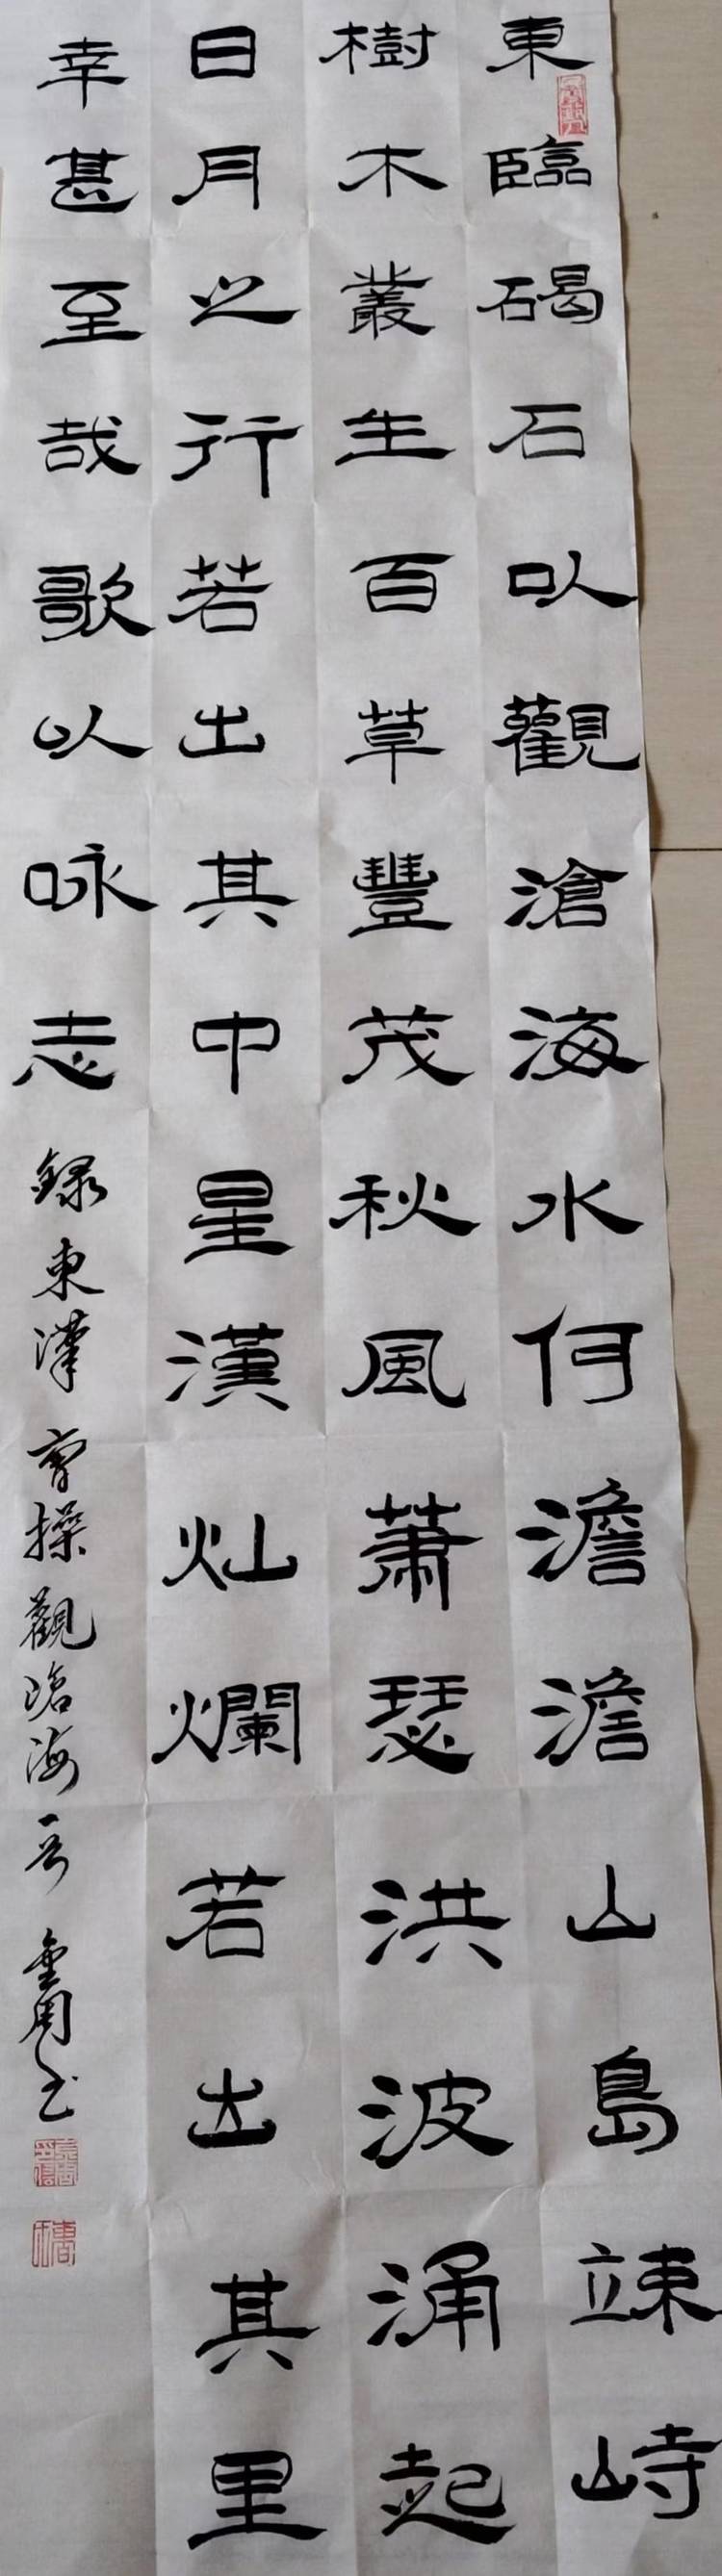 東臨碣石以觀滄海水何澹澹山島竦峙
樹木叢生百草豐茂秋風蕭瑟洪波涌起
日月之行若出其中星漢灿爛若出其里
幸甚至哉歌以咏志
録東漢曹操觀滄海一首